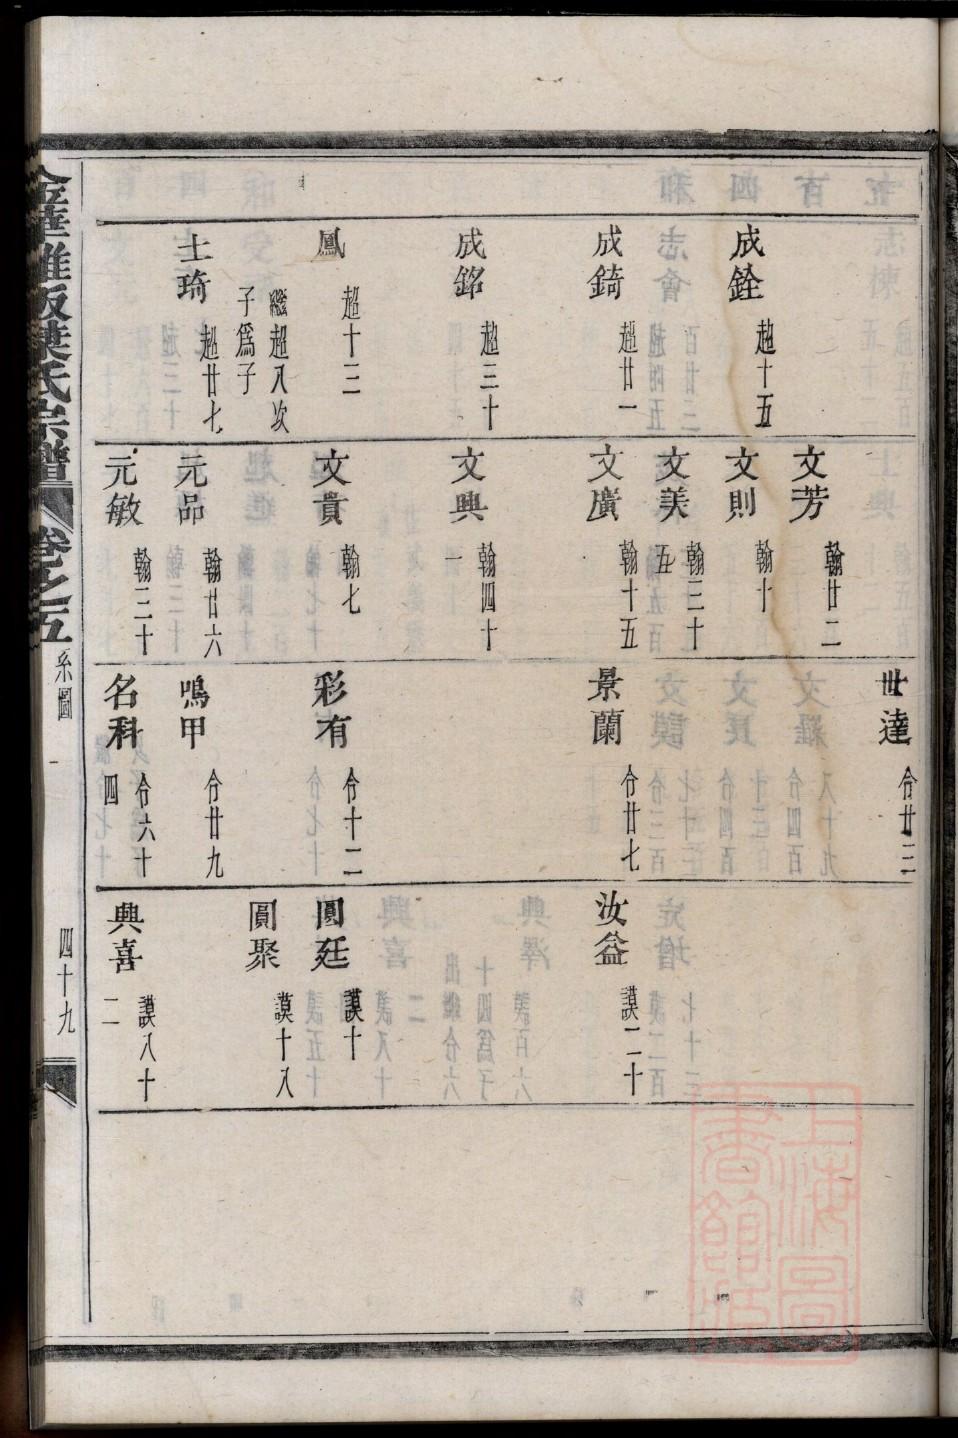 成銓 超十五
成錡 超廿一
成銘 超三十
鳳 超十三
繼超八次
子爲子
士琦 超廿七
文芳 翰廿二
文則 翰十
文美 翰三十
五
文廣 翰十五
文興 翰四十
一
文貴 翰七
元品 翰廿六
元敏 翰三十
世達 令廿三
景蘭 令廿七
彩有 令十二
鳴甲 令廿九
名科 令六十
四
汝益 謨二十
圓廷 謨十
圓聚 謨十八
興喜 謨八十
二
葉氏宗譜 卷之五 系圖 四十九
上海圖書館藏